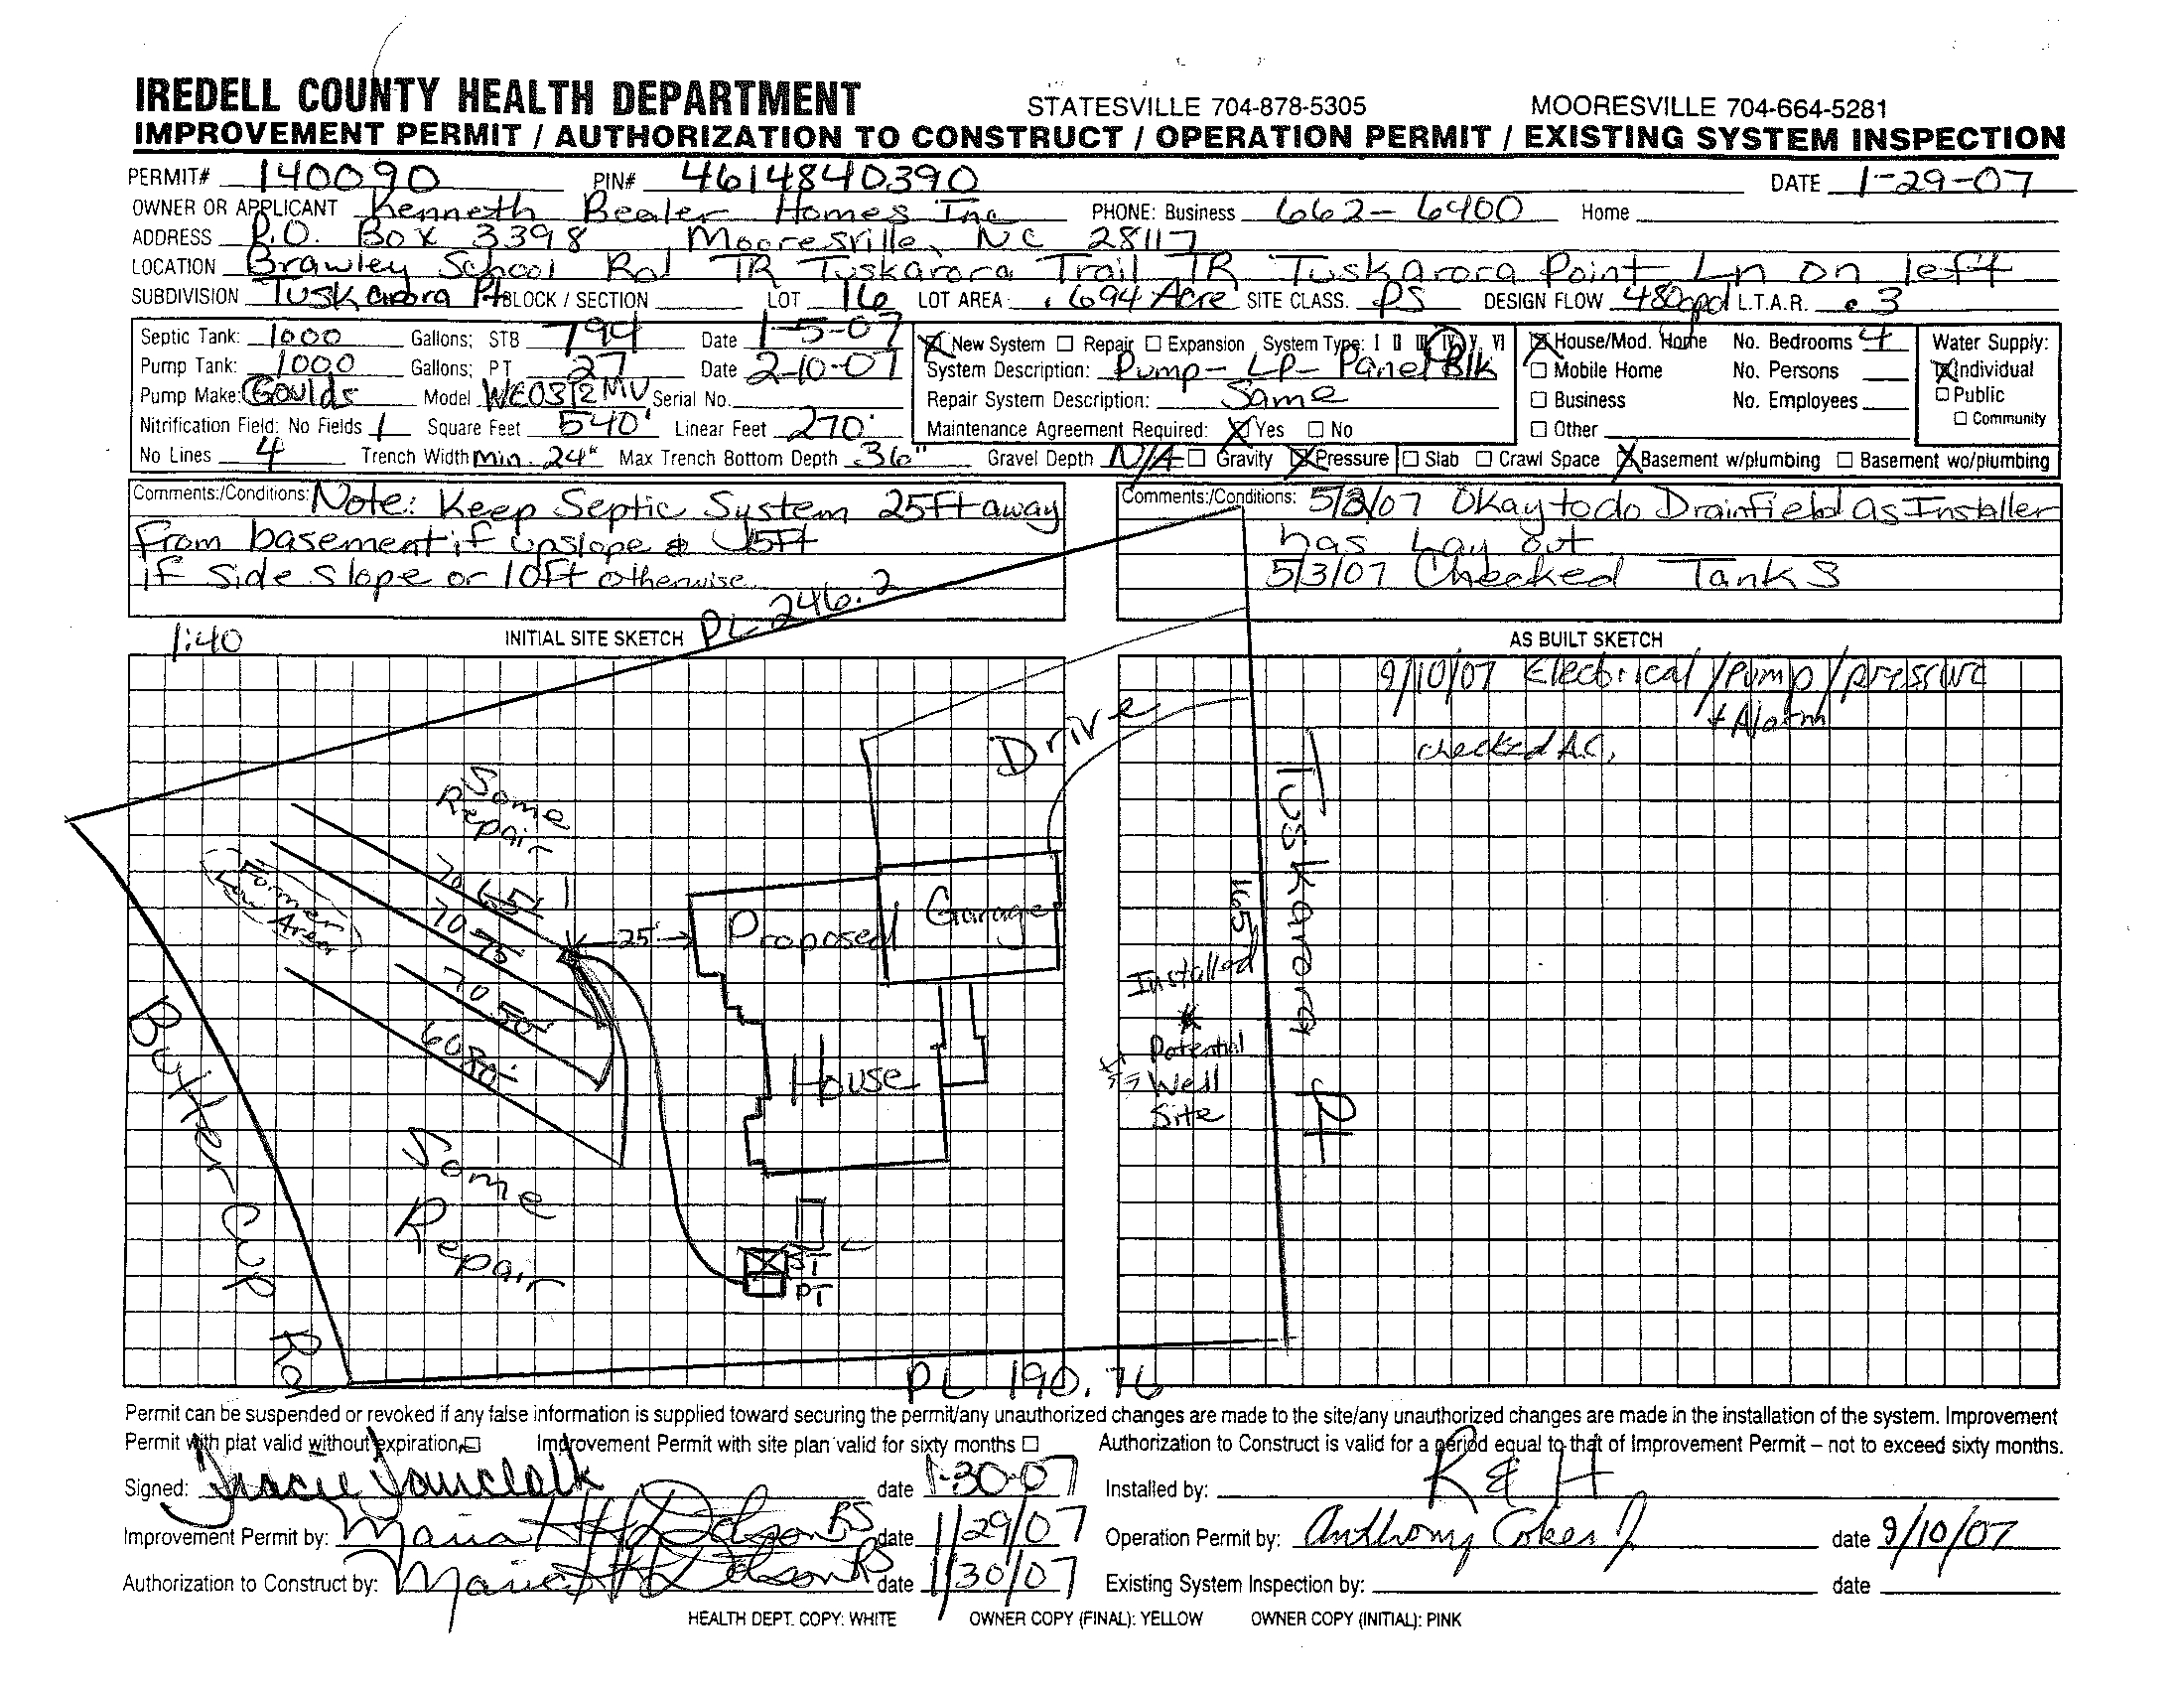 IREDELL COUNTY HEALTH DEPARTMENT STATESVILLE 704-878-5305 MOORESVILLE 704-664-5281
IMPROVEMENT PERMIT / AUTHORIZATION TO CONSTRUCT / OPERATION PERMIT / EXISTING SYSTEM INSPECTION
PERMIT# 140090 PIN# 4614840390 DATE 1-29-07
OWNER OR APPLICANT Kenneth Bealer Homes Inc PHONE: Business 662-6400 Home
ADDRESS P.O. Box 3398 Mooresville, NC 28117
LOCATION Brawley School Rd TR Tuskarora Trail TR Tuskarora Point Ln on left
SUBDIVISION Tuskarora Pt BLOCK / SECTION LOT 16 LOT AREA .694 Acre SITE CLASS. PS DESIGN FLOW 480gpd L.T.A.R. .3
Septic Tank: 1000 Gallons; STB 794 Date 1-5-07
Pump Tank: 1000 Gallons; PT 27 Date 2-10-07
Pump Make: Goulds Model WE0312MV Serial No.
Nitrification Field: No Fields 1 Square Feet 540' Linear Feet 270'
No Lines 4 Trench Width Min. 24" Max Trench Bottom Depth 36" Gravel Depth N/A Gravity Pressure Slab Crawl Space Basement w/plumbing Basement wo/plumbing
New System Repair Expansion System Type: I II III IV V VI
System Description: Pump- LP- Panel Blk
Repair System Description: Same
Maintenance Agreement Required: Yes No
House/Mod. Home No. Bedrooms 4
Mobile Home No. Persons
Business No. Employees
Other
Water Supply:
Individual
Public
Community
Comments:/Conditions: Note: Keep Septic System 25Ft away
From basement if upslope & 15Ft
if Side Slope or 10Ft otherwise
Comments:/Conditions: 5/2/07 Okay to do Drainfield as Installer
has Lay out
5/3/07 Checked Tanks
1:40 INITIAL SITE SKETCH PL 246.2
AS BUILT SKETCH
9/10/07 Electrical/Pump/pressure
+ Alarm
checked A.C.
Drive
Some
Repair
70 65'
70 75'
70 50'
60 80'
Area
25'
Proposed
Garage
House
165
Installed
Potential
Well
Site
Tuskarora Pt
Butter Cup Rd
Some
Repair
ST
PT
PL 190.76
Permit can be suspended or revoked if any false information is supplied toward securing the permit/any unauthorized changes are made to the site/any unauthorized changes are made in the installation of the system. Improvement
Permit with plat valid without expiration Improvement Permit with site plan valid for sixty months Authorization to Construct is valid for a period equal to that of Improvement Permit – not to exceed sixty months.
Signed: date 1-30-07 Installed by: R & H
Improvement Permit by: Maria RS date 1/29/07 Operation Permit by: Anthony Cokes Jr date 9/10/07
Authorization to Construct by: Maria RS date 1/30/07 Existing System Inspection by: date
HEALTH DEPT. COPY: WHITE OWNER COPY (FINAL): YELLOW OWNER COPY (INITIAL): PINK